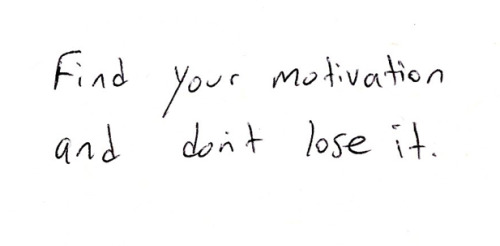 Find your motivation
and don't lose it.